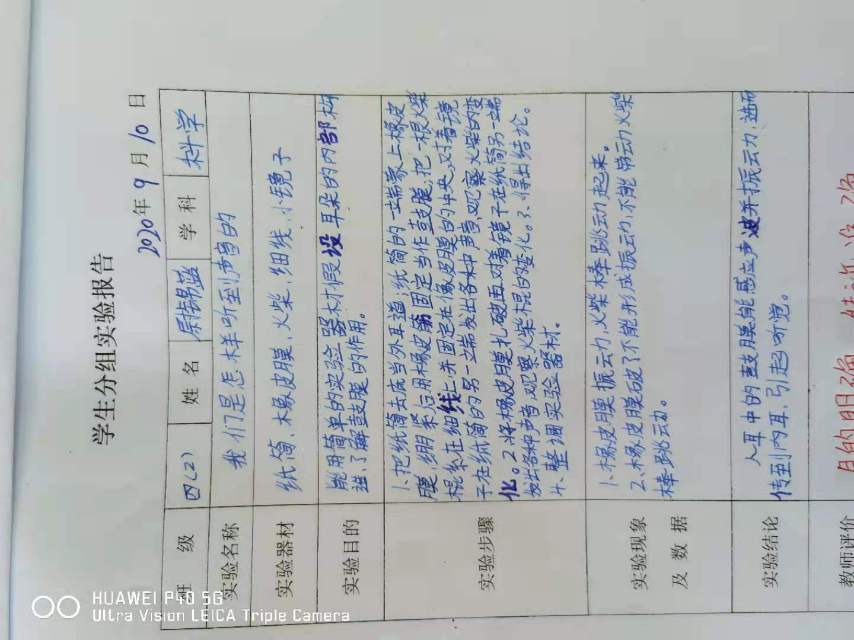 学生分组实验报告
2020年9月10日
班 级 四(2) 姓 名 学 科 科学
实验名称 我们是怎样听到声音的
实验器材 纸筒、橡皮膜、火柴、细线、小镜子
实验目的 能用简单的实验器材假设耳朵的内部构
造,了解鼓膜的作用。
实验步骤 1.把纸筒去底当外耳道,纸筒的一端蒙上橡皮
膜,绷紧后用橡皮筋固定当作鼓膜,把一根火柴
棍系在细线上并固定在像皮膜的中央,对着镜
子在纸筒的另一端发出各种声音,观察火柴的变
化。2.将橡皮膜扎破再对着镜子在纸筒另一端
发出各种声音,观察火柴棍的变化。3、得出结论。
4、整理实验器材。
实验现象
及 数 据
1.橡皮膜振动,火柴棒跳动起来。
2.橡皮膜破了不能形成振动,不能带动火柴
棒跳动。
实验结论 人耳中的鼓膜能感应声波并振动,进而
传到内耳,引起听觉。
教师评价 目的明确
HUAWEI P40 5G
Ultra Vision LEICA Triple Camera